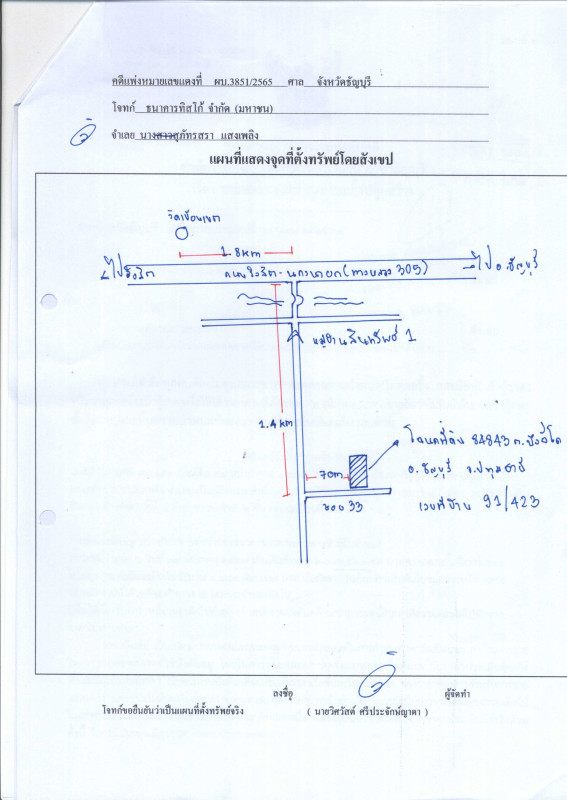 คดีแพ่งหมายเลขแดงที่ ผบ.3851/2565 ศาล จังหวัดธัญบุรี
โจทก์ ธนาคารทิสโก้ จำกัด (มหาชน)
จำเลย นางสาวสุภัทรสรา แสงเพลิง
แผนที่แสดงจุดที่ตั้งทรัพย์โดยสังเขป
วัดเขียนเขต
1.8km
ไปรังสิต
ถนนรังสิต-นครนายก(ทางหลวง 305)
ไป อ.ธัญบุรี
หมู่บ้านสินทรัพย์ 1
1.4km
โฉนดที่ดิน 84843 ต.บึงยี่โถ
อ.ธัญบุรี จ.ปทุมธานี
70m
ซอย 33
เลขที่บ้าน 91/423
ลงชื่อ ผู้จัดทำ
โจทก์ขอยืนยันว่าเป็นแผนที่ตั้งทรัพย์จริง ( นายวิศวัสต์ ศรีประจักษ์ญาดา )